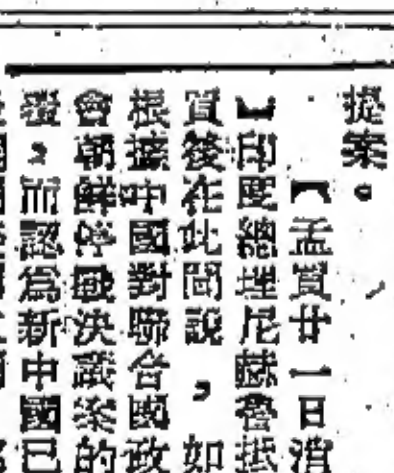 提案。
【孟買廿一日消
】印度總理尼赫魯抵
買後在此間說，如
根據中國對聯合國政
會朝鮮停戰決議案的
，而認為新中國已